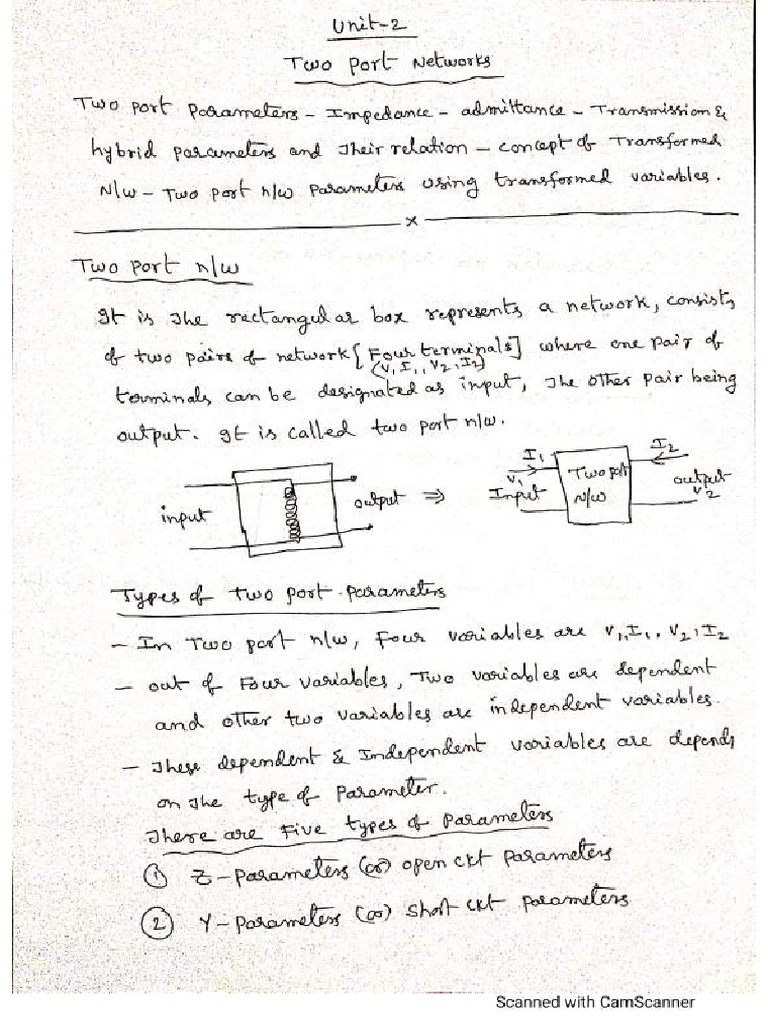 Unit-2
Two Port Networks
Two port parameters - Impedance - admittance - Transmission &
hybrid parameters and their relation - concept of Transformed
N/w - Two port n/w parameters using transformed variables.
x
Two port n/w
It is the rectangular box represents a network, consists
of two pairs of network [Four terminals] where one pair of
(V1 I1, V2, I2)
terminals can be designated as input, the other pair being
output. It is called two port n/w.
input output ⇒ I1 V1 Input Two port N/W I2 output V2
Types of two port parameters
- In Two port n/w, Four variables are V1, I1, V2, I2
- out of Four variables, Two variables are dependent
and other two variables are independent variables.
- These dependent & Independent variables are depends
on the type of parameter.
There are Five types of parameters
① Z-parameters (or) open ckt parameters
② Y-parameters (or) short ckt parameters
Scanned with CamScanner